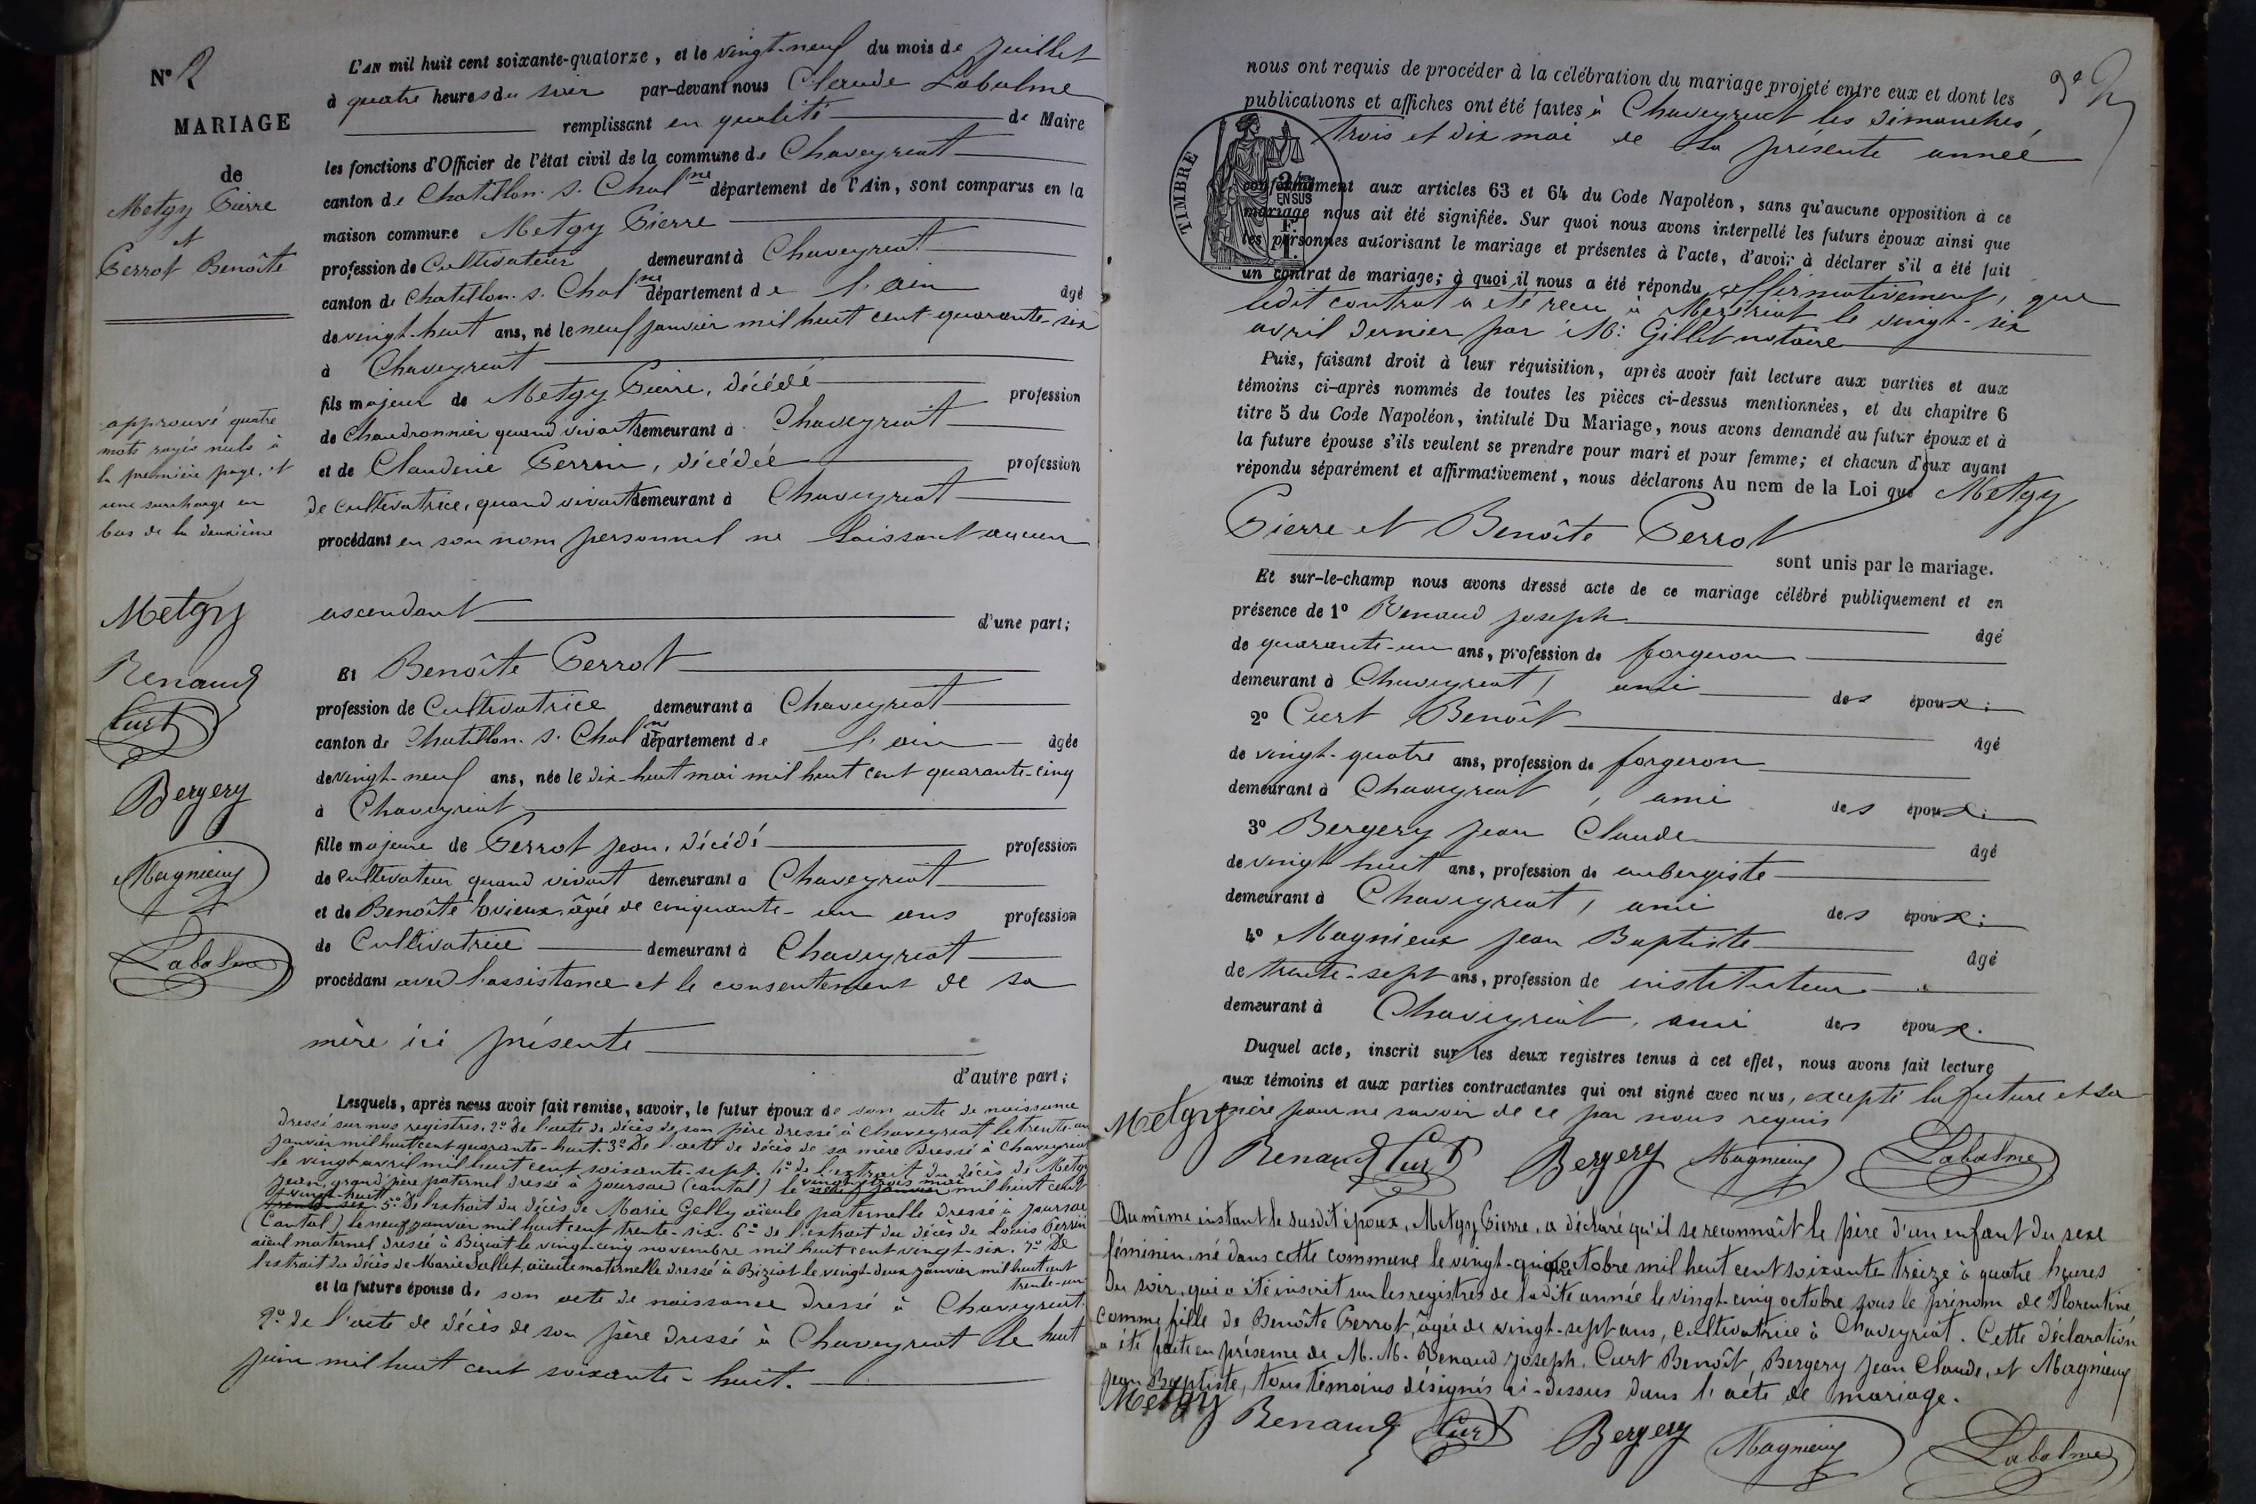 N° 2
MARIAGE
de
Metgy Pierre
et
Perrot Benoîte
approuvé quatre
mots rayés nuls à
la première page, et
une surcharge en
bas de la deuxième
Metgy
Renaud
Curt
Bergery
Magnieux
Labalme
L'AN mil huit cent soixante-quatorze, et le vingt-neuf du mois de juillet
à quatre heures du soir par-devant nous Claude Labalme
remplissant en qualité de Maire
les fonctions d'Officier de l'état civil de la commune de Chaveyriat
canton de Chatillon-s-Chal ne département de l'Ain, sont comparus en la
maison commune Metgy Pierre
profession de Cultivateur demeurant à Chaveyriat
canton de Chatillon-s-Chal ne département de l'ain âgé
de vingt-huit ans, né le neuf janvier mil huit cent quarante-six
à Chaveyriat
fils majeur de Metgy Pierre, décédé profession
de Chaudronnier quand vivait demeurant à Chaveyriat
et de Claudine Perrin, décédée profession
de cultivatrice, quand vivait demeurant à Chaveyriat
procédant en son nom personnel ne laissant aucun
ascendant d'une part;
Et Benoîte Perrot
profession de Cultivatrice demeurant à Chaveyriat
canton de Chatillon-s-Chal ne département de l'ain âgée
de vingt-neuf ans, née le dix-huit mai mil huit cent quarante-cinq
à Chaveyriat
fille majeure de Perrot Jean, décédé profession
de Cultivateur quand vivait demeurant à Chaveyriat
et de Benoîte âgée de cinquante-un ans profession
de Cultivatrice demeurant à Chaveyriat
procédant avec l'assistance et le consentement de sa
mère ici présente
d'autre part;
Lesquels, après nous avoir fait remise, savoir, le futur époux de son acte de naissance
dressé sur nos registres. 2° de l'acte de décès de son père dressé à Chaveyriat le trente-un
janvier mil huit cent quarante-huit. 3° De l'acte de décès de sa mère dressé à Chaveyriat
le vingt avril mil huit cent soixante-sept. 4° de l'extrait du décès de Metgy
Jean, grand père paternel dressé à Joursac (cantal) le vingt-trois mai neuf janvier mil huit cent
vingt-huit trente-six. 5° De l'extrait du décès de Marie Gelly aïeule paternelle dressé à Joursac
(Cantal) le neuf janvier mil huit cent trente-six. 6° de l'extrait du décès de Louis Perrin
aïeul maternel dressé à Biziat le vingt-cinq novembre mil huit cent vingt-six. 7° De
l'extrait du décès de Marie aïeule maternelle dressé à Biziat le vingt-deux janvier mil huit cent
trente-un
et la future épouse de son acte de naissance dressé à Chaveyriat.
2° de l'acte de décès de son père dressé à Chaveyriat le huit
juin mil huit cent soixante-huit.
nous ont requis de procéder à la célébration du mariage projeté entre eux et dont les
publications et affiches ont été faites à Chaveyriat les dimanches
trois et dix mai de la présente année
TIMBRE
EN SUS
conformément aux articles 63 et 64 du Code Napoléon, sans qu'aucune opposition à ce
mariage nous ait été signifiée. Sur quoi nous avons interpellé les futurs époux ainsi que
les personnes autorisant le mariage et présentes à l'acte, d'avoir à déclarer s'il a été fait
un contrat de mariage; à quoi il nous a été répondu affirmativement, que
ledit contrat a été reçu à Mézériat le vingt-six
avril dernier par M. Gillet notaire
Puis, faisant droit à leur réquisition, après avoir fait lecture aux parties et aux
témoins ci-après nommés de toutes les pièces ci-dessus mentionnées, et du chapitre 6
titre 5 du Code Napoléon, intitulé Du Mariage, nous avons demandé au futur époux et à
la future épouse s'ils veulent se prendre pour mari et pour femme; et chacun d'eux ayant
répondu séparément et affirmativement, nous déclarons Au nom de la Loi que Metgy
Pierre et Benoîte Perrot
sont unis par le mariage.
Et sur-le-champ nous avons dressé acte de ce mariage célébré publiquement et en
présence de 1° Renaud Joseph âgé
de quarante-un ans, profession de forgeron
demeurant à Chaveyriat, ami des époux;
2° Curt Benoît âgé
de vingt-quatre ans, profession de forgeron
demeurant à Chaveyriat, ami des époux;
3° Bergery Jean Claude âgé
de vingt huit ans, profession de aubergiste
demeurant à Chaveyriat, ami des époux;
4° Magnieux Jean Baptiste âgé
de trente-sept ans, profession de instituteur
demeurant à Chaveyriat, ami des époux.
Duquel acte, inscrit sur les deux registres tenus à cet effet, nous avons fait lecture
aux témoins et aux parties contractantes qui ont signé avec nous, excepté la future et sa
mère pour ne savoir de ce par nous requis
Metgy Renaud Curt Bergery Magnieux Labalme
Au même instant le susdit époux, Metgy Pierre, a déclaré qu'il se reconnaît le père d'un enfant du sexe
féminin, né dans cette commune le octobre mil huit cent soixante treize à quatre heures
du soir, qui a été inscrit sur les registres de ladite année le vingt-cinq octobre sous le prénom de Florentine
comme fille de Benoîte Perrot, âgée de vingt-sept ans, cultivatrice à Chaveyriat. Cette déclaration
a été faite en présence de M.M. Renaud Joseph, Curt Benoît, Bergery Jean Claude, et Magnieux
Jean Baptiste, tous témoins désignés ci-dessus dans l'acte de mariage.
Metgy Renaud Curt Bergery Magnieux Labalme